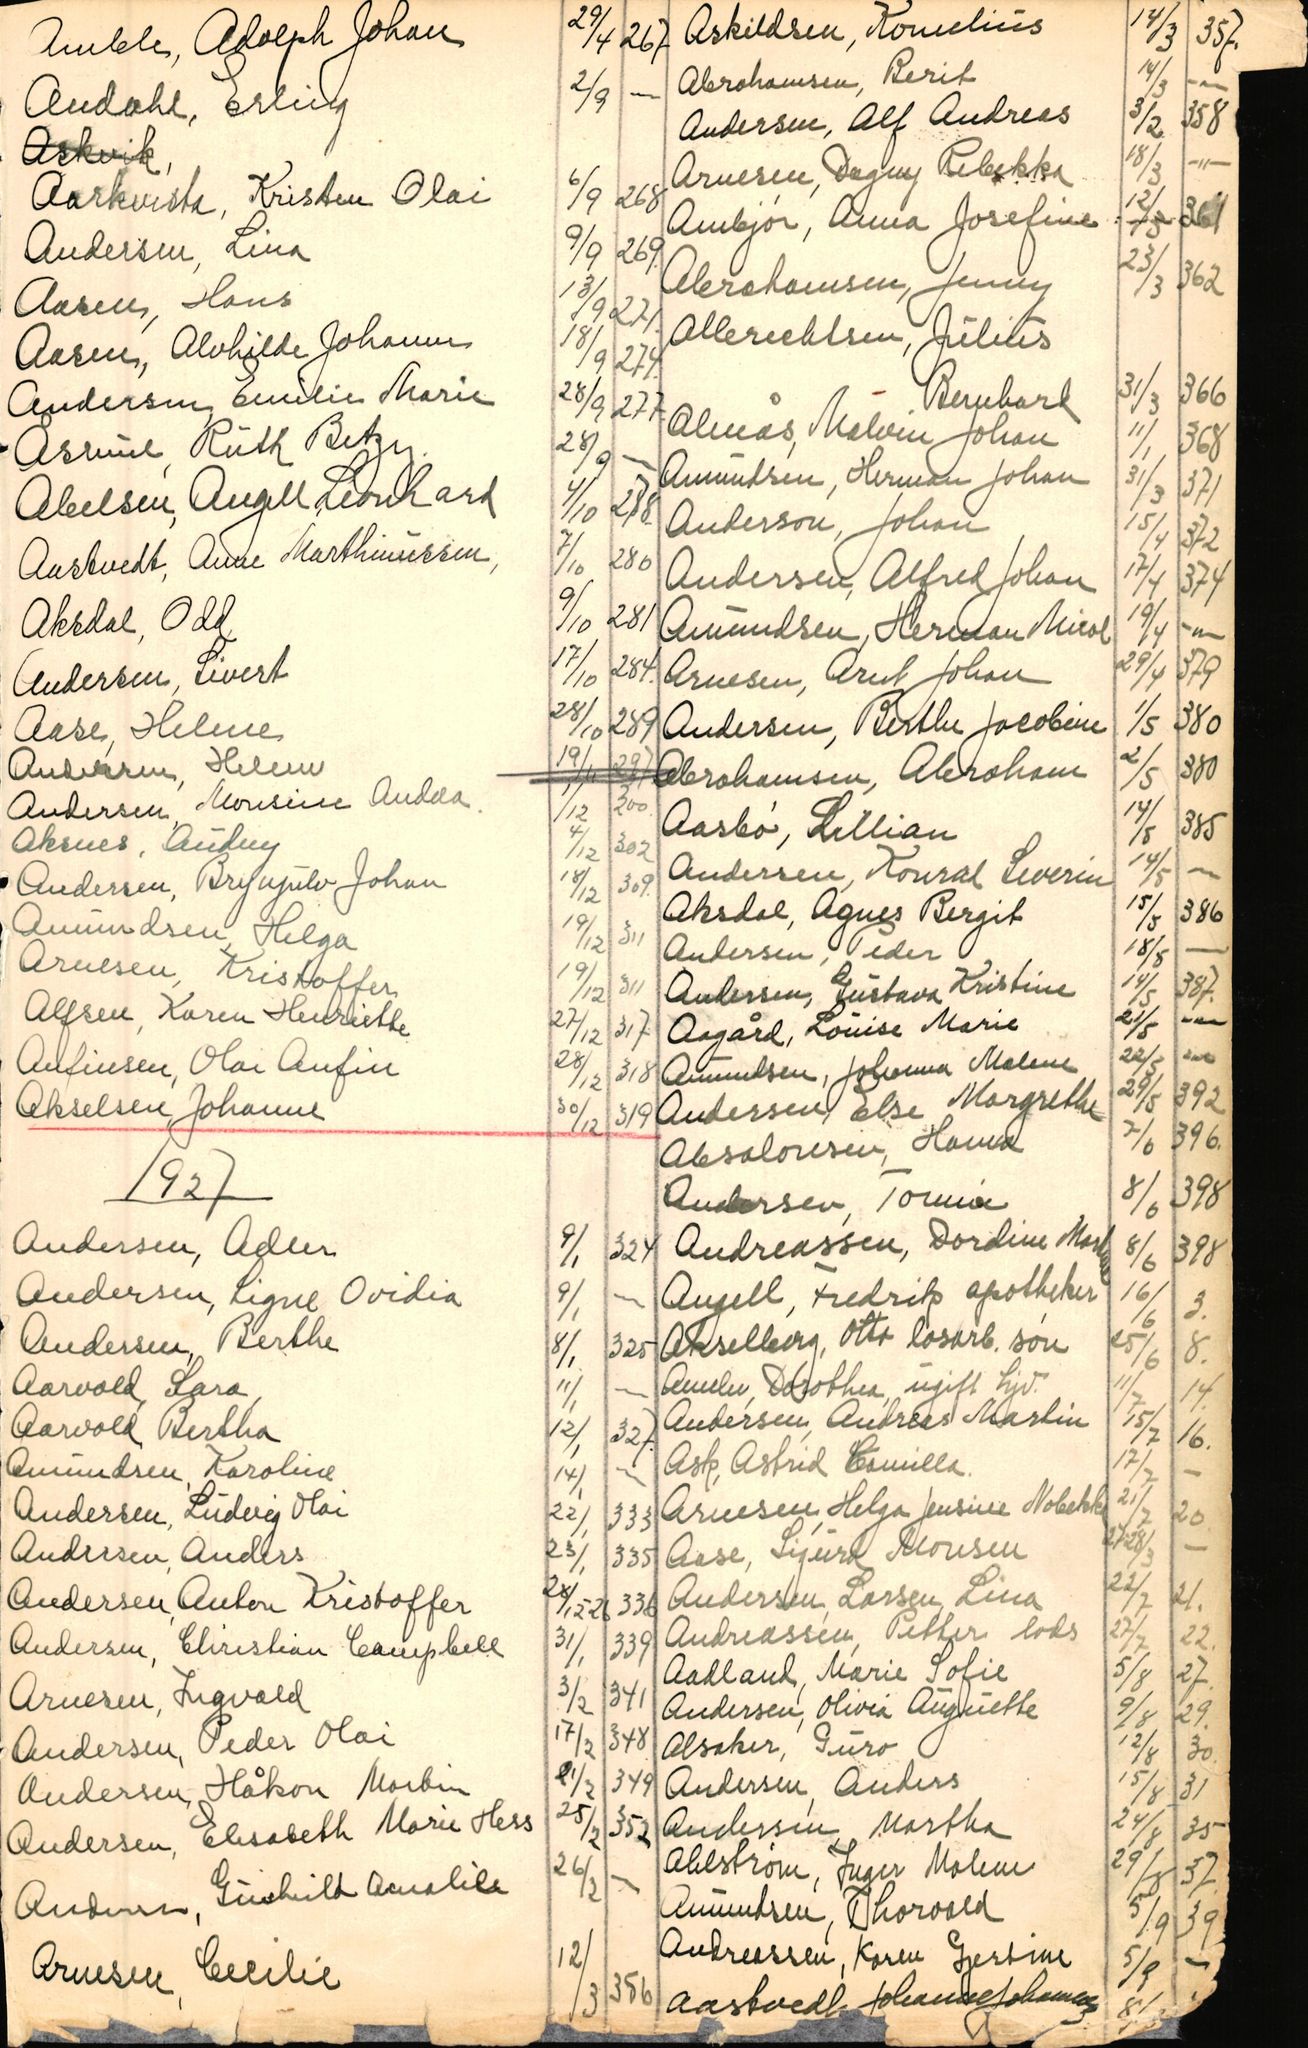 Amble, Adolph Johan 29/4 267
Andahl, Erling 2/9 —
Askvik,
Aarkvisla, Kristen Olai 6/9 268
Andersen, Lina 9/9 269.
Aasen, Hans 13/9 271.
Aasen, Alvhilde Johanne 18/9 274.
Andersen, Emilie Marie 28/9 277
Ruth Betzy. 28/9 —
Abelsen, Angell Leonhard 4/10 278
Aastvedt, Anne Marthinussen, 7/10 280
Aksdal, Odd 9/10 281
Andersen, Sivert 17/10 284.
Aase, Helene 28/10 289
Andersen, Helene 19/11 297
Andersen, Monsine Andrea. /12 300.
Aksnes, Audny 4/12 302
Andersen, Brynjulv Johan 18/12 309.
Amundsen, Helga 19/12 311
Arnesen, Kristoffer 19/12 311
Alfsen, Karen Henriette 27/12 317.
Anfinsen, Olai Anfin 28/12 318
Akselsen, Johanne 30/12 319
1927
Andersen, Adler 9/1 324
Andersen, Signe Ovidia 9/1 —
Andersen, Berthe 8/1 325
Aarvold, Sara, 11/1 —
Aarvold, Bertha 12/1 327.
Amundsen, Karoline 14/1 —
Andersen, Ludvig Olai 22/1 333
Andersen, Anders 23/1 335
Andersen, Anton Kristoffer 28/12 26 336
Andersen, Christian Campbell 31/1 339
Arnesen, Ingvald 3/2 341
Andersen, Peder Olai 17/2 348
Andersen, Håkon Martin 21/2 349
Andersen, Elisabeth Marie Hess 25/2 352
Andersen, Gunhild Amalile 26/2 —
Arnesen, Cecilie 12/3 356
Askildsen, Kornelius 14/3 357.
Abrahamsen, Berit 14/3 —
Andersen, Alf Andreas 3/2 358
Arnesen, Dagny Rebekka 18/3 —"—
Ambjør, Anna Josefine 12/3 361
Abrahamsen, Jenny 23/3 362
Albrechtsen, Julius
Bernhard 31/3 366
Almås, Malvin Johan 11/1 368
Amundsen, Herman Johan 31/3 371
Anderson, Johan 15/4 372
Andersen, Alfred Johan 17/4 374
Amundsen, Herman Nicol 19/4 —"—
Arnesen, Arnt Johan 29/4 379
Andersen, Berthe Jacobine 1/5 380
Abrahamsen, Abraham 2/5 380
Aasbø, Lillian 14/5 385
Andersen, Konrad Severin 14/5 —
Aksdal, Agnes Bergit 15/5 386
Andersen, Peder 18/5 —
Andersen, Gustava Kristine 14/5 387.
Aagård, Louise Marie 21/5 —"—
Amundsen, Johanna Malene 22/5 —"—
Andersen, Else Margrethe 29/5 392
Absalonsen, Hanna 7/6 396.
Andersen, Tomine 8/6 398
Andreassen, Dordine 8/6 398
Angell, Fredrik apotheker 16/6 3.
Akselberg, Otto losarb. søn 25/6 8.
Dorothea, ugift hjv. 11/7 14.
Andersen, Andreas Martin 15/7 16.
Ask, Astrid Camilla. 17/7 —
Arnesen, Helga Jensine 21/7 20
Aase, Sigurd Monsen —
Andersen, Larsen, Lina 22/7 21.
Andreassen, Petter lods 27/7 22.
Aadland, Marie Sofie 5/8 27.
Andersen, Olivia Augnette 9/8 29.
Alsaker, Guro 12/8 30.
Andersen, Anders 15/8 31
Andersen, Martha 24/8 35
Ahlstrøm, Inger Malene 29/8 37.
Amundsen, Thorvald 5/9 39
Andreassen, Karen Gjertine 5/9 —
Aastvedt, Johanne 8/